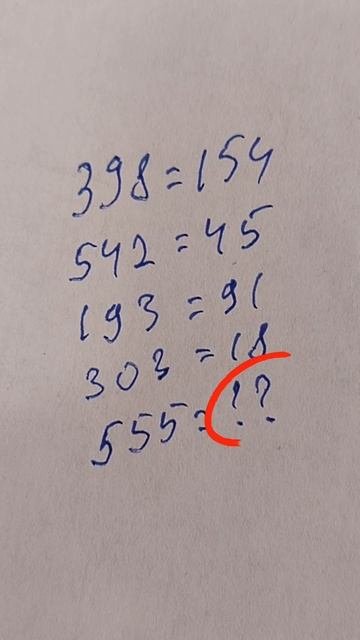 398=154
542=45
193=91
303=18
555=??